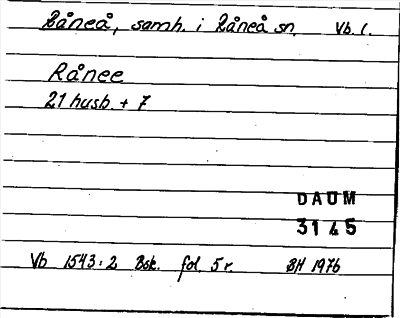 Råneå, samh. i Råneå sn. Vb. l.
Rånee
21 husb. + 7
DAUM
3145
Vb 1543:2 Bsk. fol. 5 r. BH 1976